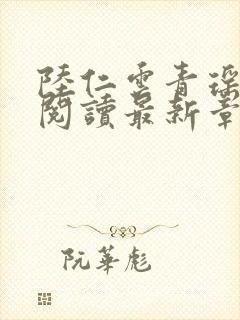 陸仁雲青瑶
閱讀最新章
阮華彪